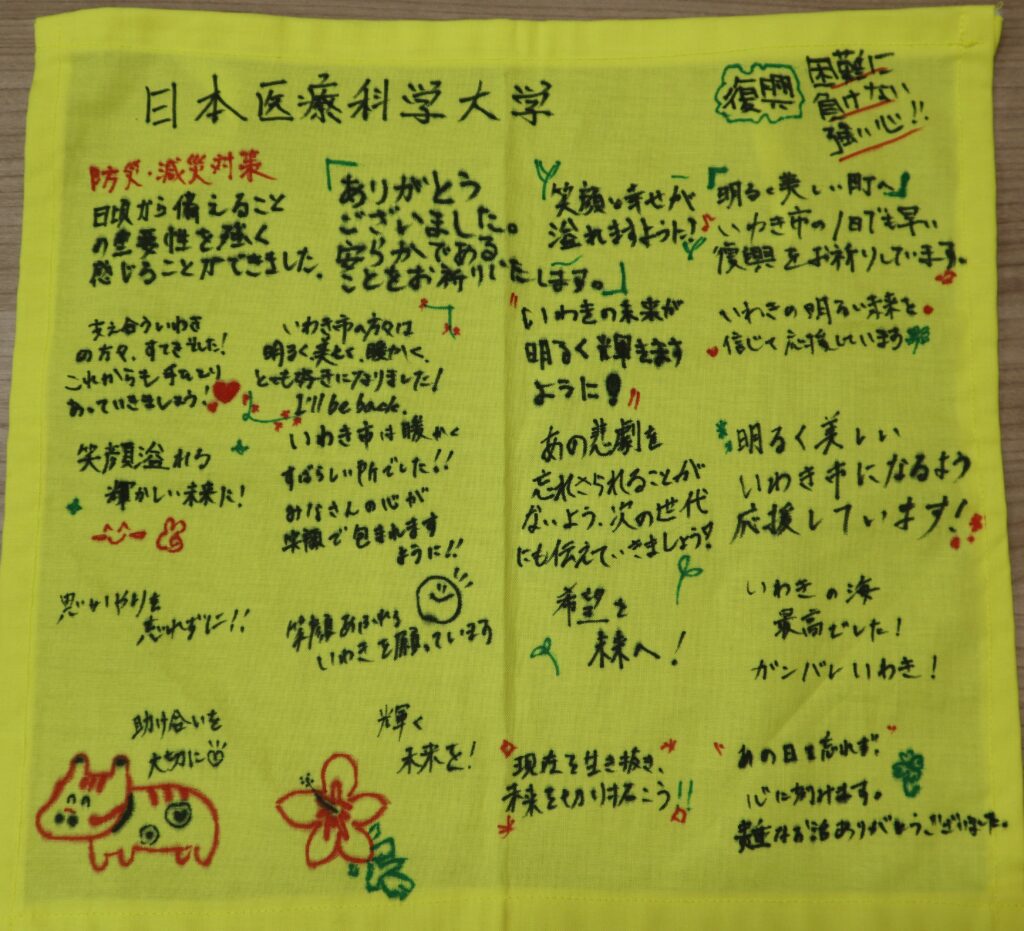 日本医療科学大学
復興
困難に
負けない
強い心!!
防災・減災対策
日頃から備えること
の重要性を強く
感じることができました.
「ありがとう
ございました。
安らかである
ことをお祈りいたします。」
笑顔と幸せが
溢れますように!
「明るく美しい町へ」
いわき市の1日でも早い
復興をお祈りしています。
支え合ういわき
の方々、すてきでした!
これからも手をとり
あっていきましょう!
いわき市の方々は
明るく美しく、暖かく、
とても好きになりました!
I'll be back.
いわきの未来が
明るく輝きます
ように!
いわきの明るい未来を
信じて応援しています
笑顔溢れる
輝かしい未来に!
いわき市は暖かく
すばらしい所でした!!
みなさんの心が
笑顔で包まれます
ように!!
あの悲劇を
忘れさられることが
ないよう、次の世代
にも伝えていきましょう!
明るく美しい
いわき市になるよう
応援しています!
思いやりを
忘れずに!!
笑顔あふれる
いわきを願っています
希望を
未来へ!
いわきの海
最高でした!
ガンバレいわき!
助け合いを
大切に
輝く
未来を!
現在を生き抜き、
未来を切り拓こう!!
あの日を忘れず、
心に刻みます。
貴重なお話ありがとうございました。